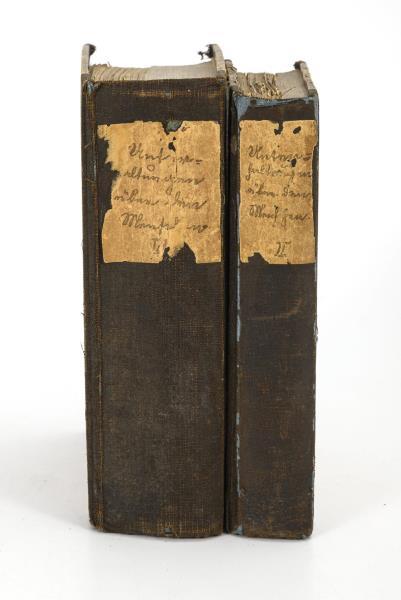 Unter-
haltungen
über den
Menschen
I
Unter-
haltungen
über den
Menschen
II